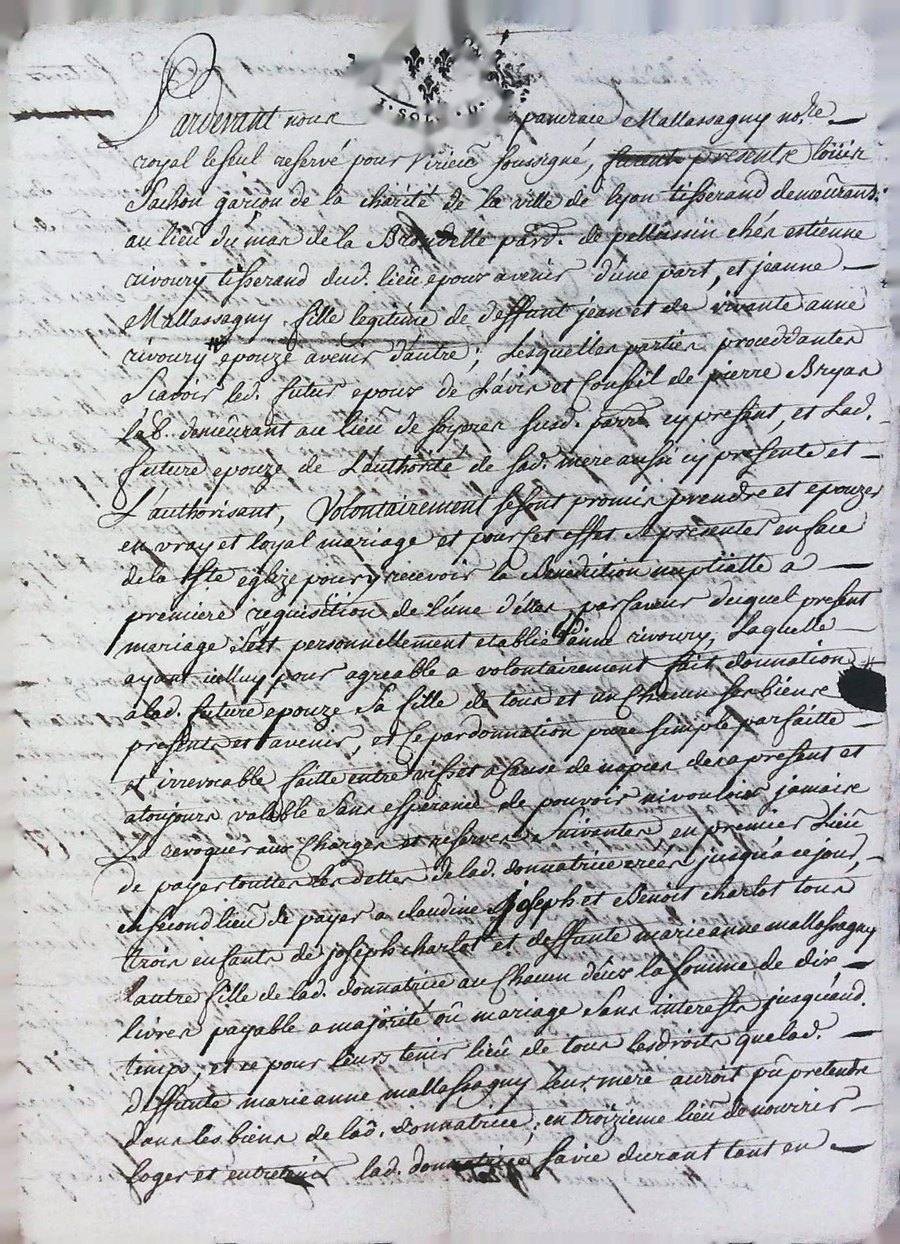 I · SOL · D
Pardevant nous pancrace Mallassagny no.re
royal le seul reservé pour Virieu soussigné, furent presents loüis
Sachon garçon de la charité de la ville de lyon tisserand demeurant
au lieu du mas de la Brondelle parr. de pellussin chés estienne
rivoury tisserand dud. lieu epoux avenir d'une part, et jeanne
Mallassagny fille legitime de deffunt jean et de vivante anne
rivoury epouze avenir d'autre; Lesquelles parties proceddantes
Scavoir led. futur epoux de L'avis et Conseil de pierre Bryas
lab. demeurant au lieu de susd. parr. cy present, et Lad.
future epouze de L'authorité de sad. mere aussi cy presente et
L'authorisant, Volontairement se sont promis prendre et epouzer
en vray et loyal mariage et pour cet effet se presenter en face
de la ste eglize pour y recevoir la Benedition nuptialle a
premiere requisition de l'une d'elles, par faveur duquel present
mariage s'est personnellement etablie anne rivoury, Laquelle
ayant icelluy pour agreable a volontairement fait donnation
a lad. future epouze Sa fille de tous et un Chacun ses biens
presents et avenir, et ce par donnation pure simple parfaitte
et irrevocable faitte entre vifs et a cause de nopces des a present et
atoujours valable sans esperance de pouvoir ni vouloir jamais
La revoquer aux Charges et reserves Suivantes en premier Lieu
de payer touttes les dettes de lad. donnatrice creés jusqu'a ce jour,
en second lieu de payer a claudine joseph et Benoit charlot tous
trois enfants de joseph charlot et deffunte marie anne mallassagny
l'autre fille de lad. donnatrice au Chacun d'eux la somme de dix
livres payable a majorité oû mariage sans interests jusqu'aud.
temps, et ce pour leurs tenir lieu de tous les droits que lad.
deffunte marie anne mallassagny leur mere auroit pû pretendre
dans les biens de lad. donnatrice; en troizieme lieu de nourrir
loger et entretenir lad. donnatrice sa vie durant tant en